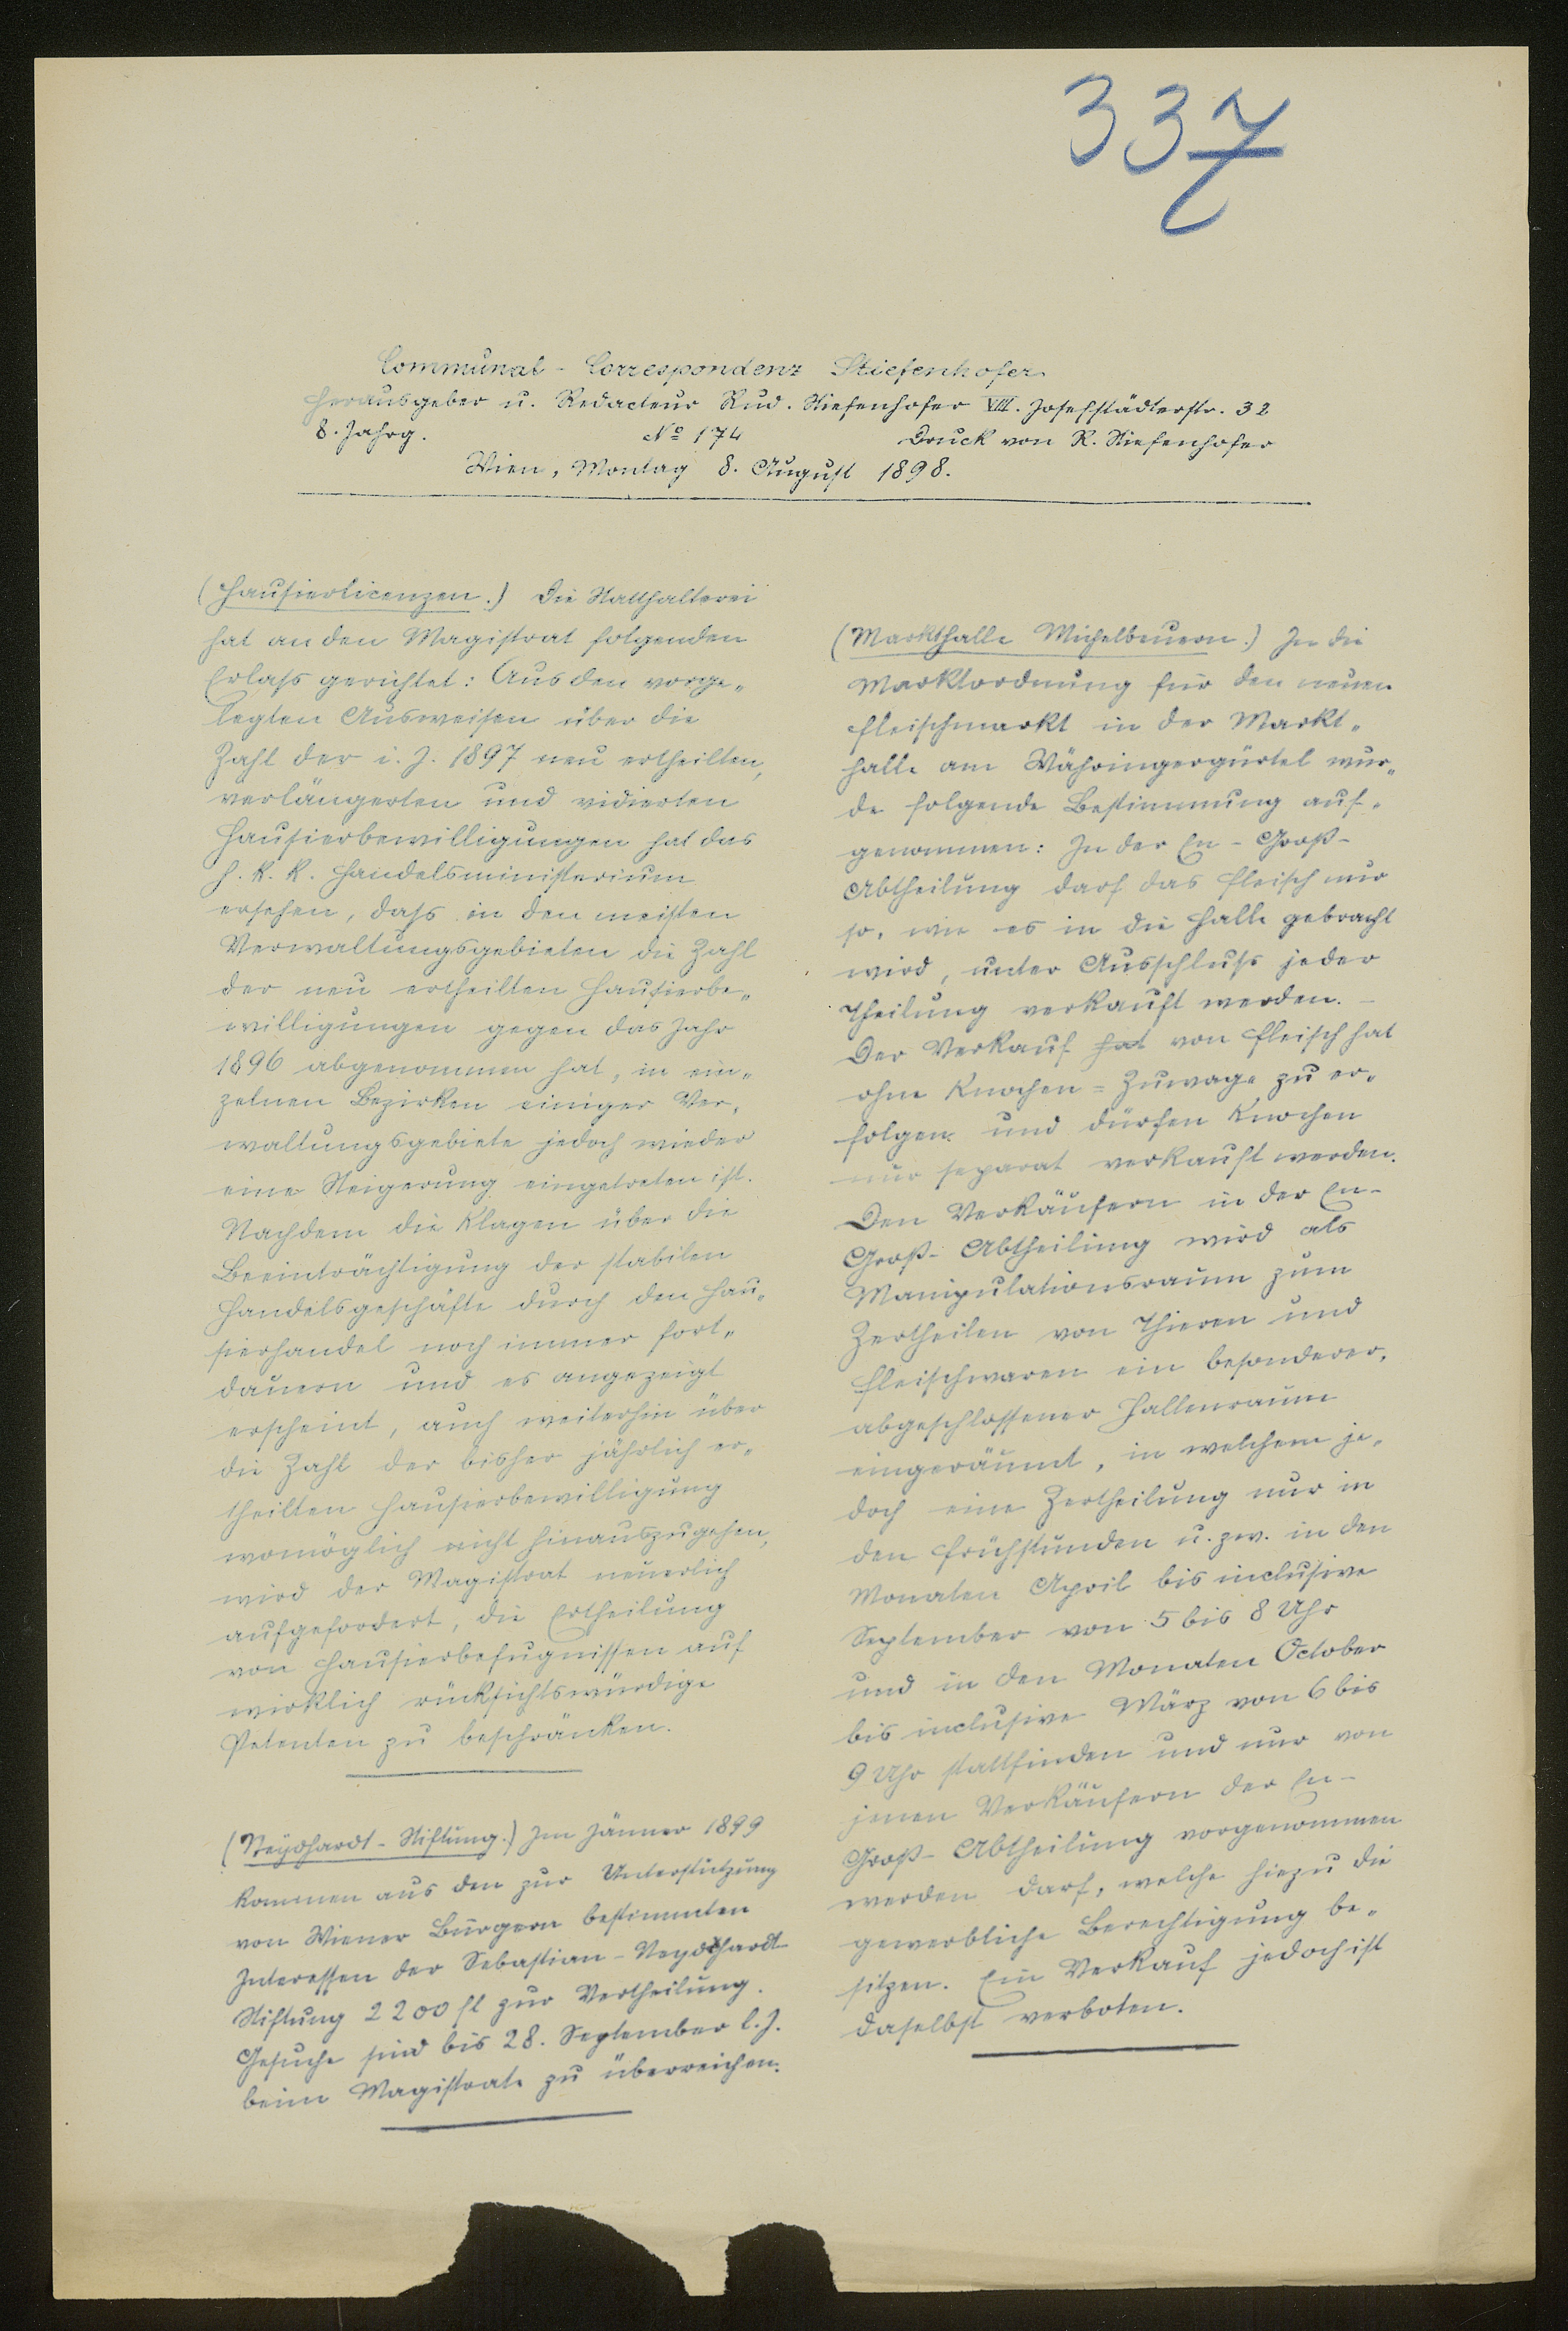 337
Communal-Correspondenz Stiefenhofer
Herausgeber u. Redacteur Rud. Stiefenhofer VIII. Josefstädterstr. 32
8. Jahrg. No 174 Druck von R. Stiefenhofer
Wien, Montag 8. August 1898.
(Hausierlicenzen.) Die Statthalterei
hat an den Magistrat folgenden
Erlass gerichtet: Aus den vorge„
legten Ausweisen über die
Zahl der i. J. 1897 neu ertheilten,
verlängerten und vidierten
Hausierbewilligungen hat das
h. k. k. Handelsministerium
ersehen, dass in den meisten
Verwaltungsgebieten die Zahl
der neu ertheilten Hausierbe„
willigungen gegen das Jahr
1896 abgenommen hat, in ein„
zelnen Bezirken einiger Ver„
waltungsgebiete jedoch wieder
eine Steigerung eingetreten ist.
Nachdem die Klagen über die
Beeinträchtigung der stabilen
Handelsgeschäfte durch den Hau„
sierhandel noch immer fort„
dauern und es angezeigt
erscheint, auch weiterhin über
die Zahl der bisher jährlich er„
theilten Hausierbewilligung
womöglich nicht hinauszugehen,
wird der Magistrat neuerlich
aufgefordert, die Ertheilung
von Hausierbefugnissen auf
wirklich rücksichtswürdige
Petenten zu beschränken.
(Neydhardt-Stiftung.) Im Jänner 1899
kommen aus den zur Unterstützung
von Wiener Bürgern bestimmten
Interessen der Sebastian-Neydhardt-
Stiftung 2200 fl zur Vertheilung.
Gesuche sind bis 28. September l. J.
beim Magistrate zu überreichen.
(Markthalle Michelbeuern.) In die
Marktordnung für den neuen
Fleischmarkt in der Markt„
halle am Währingergürtel wur„
de folgende Bestimmung auf„
genommen: In der En-Groß-
Abtheilung darf das Fleisch nur
so, wie es in die Halle gebracht
wird, unter Ausschluss jeder
Theilung verkauft werden. –
Der Verkauf hat von Fleisch hat
ohne Knochen=Zuwage zu er„
folgen und dürfen Knochen
nur separat verkauft werden.
Den Verkäufern in der En-
Groß-Abtheilung wird als
Manipulationsraum zum
Zertheilen von Thieren und
Fleischwaren ein besonderer,
abgeschlossener Hallenraum
eingeräumt, in welchem je„
doch eine Zertheilung nur in
den Frühstunden u. zw. in den
Monaten April bis inclusive
September von 5 bis 8 Uhr
und in den Monaten October
bis inclusive März von 6 bis
9 Uhr stattfinden und nur von
jenen Verkäufern der En-
Groß-Abtheilung vorgenommen
werden darf, welche hiezu die
gewerbliche Berechtigung be„
sitzen. Ein Verkauf jedoch ist
daselbst verboten.